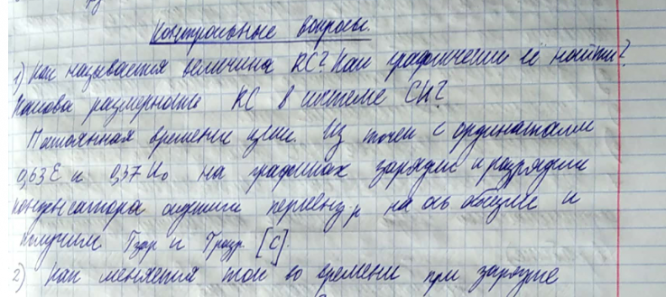 Контрольные вопросы.
1) Как называется величина RC? Как графически её найти?
Какова размерность RC в системе СИ?
Постоянная времени цепи. Из точек с ординатами
0,63Ɛ и 0,37U₀ на графиках зарядки и разрядки
конденсатора опустим перпенд-р на ось абсцисс и
получим Tзар и Tразр [С].
2) Как меняется ток со временем при зарядке